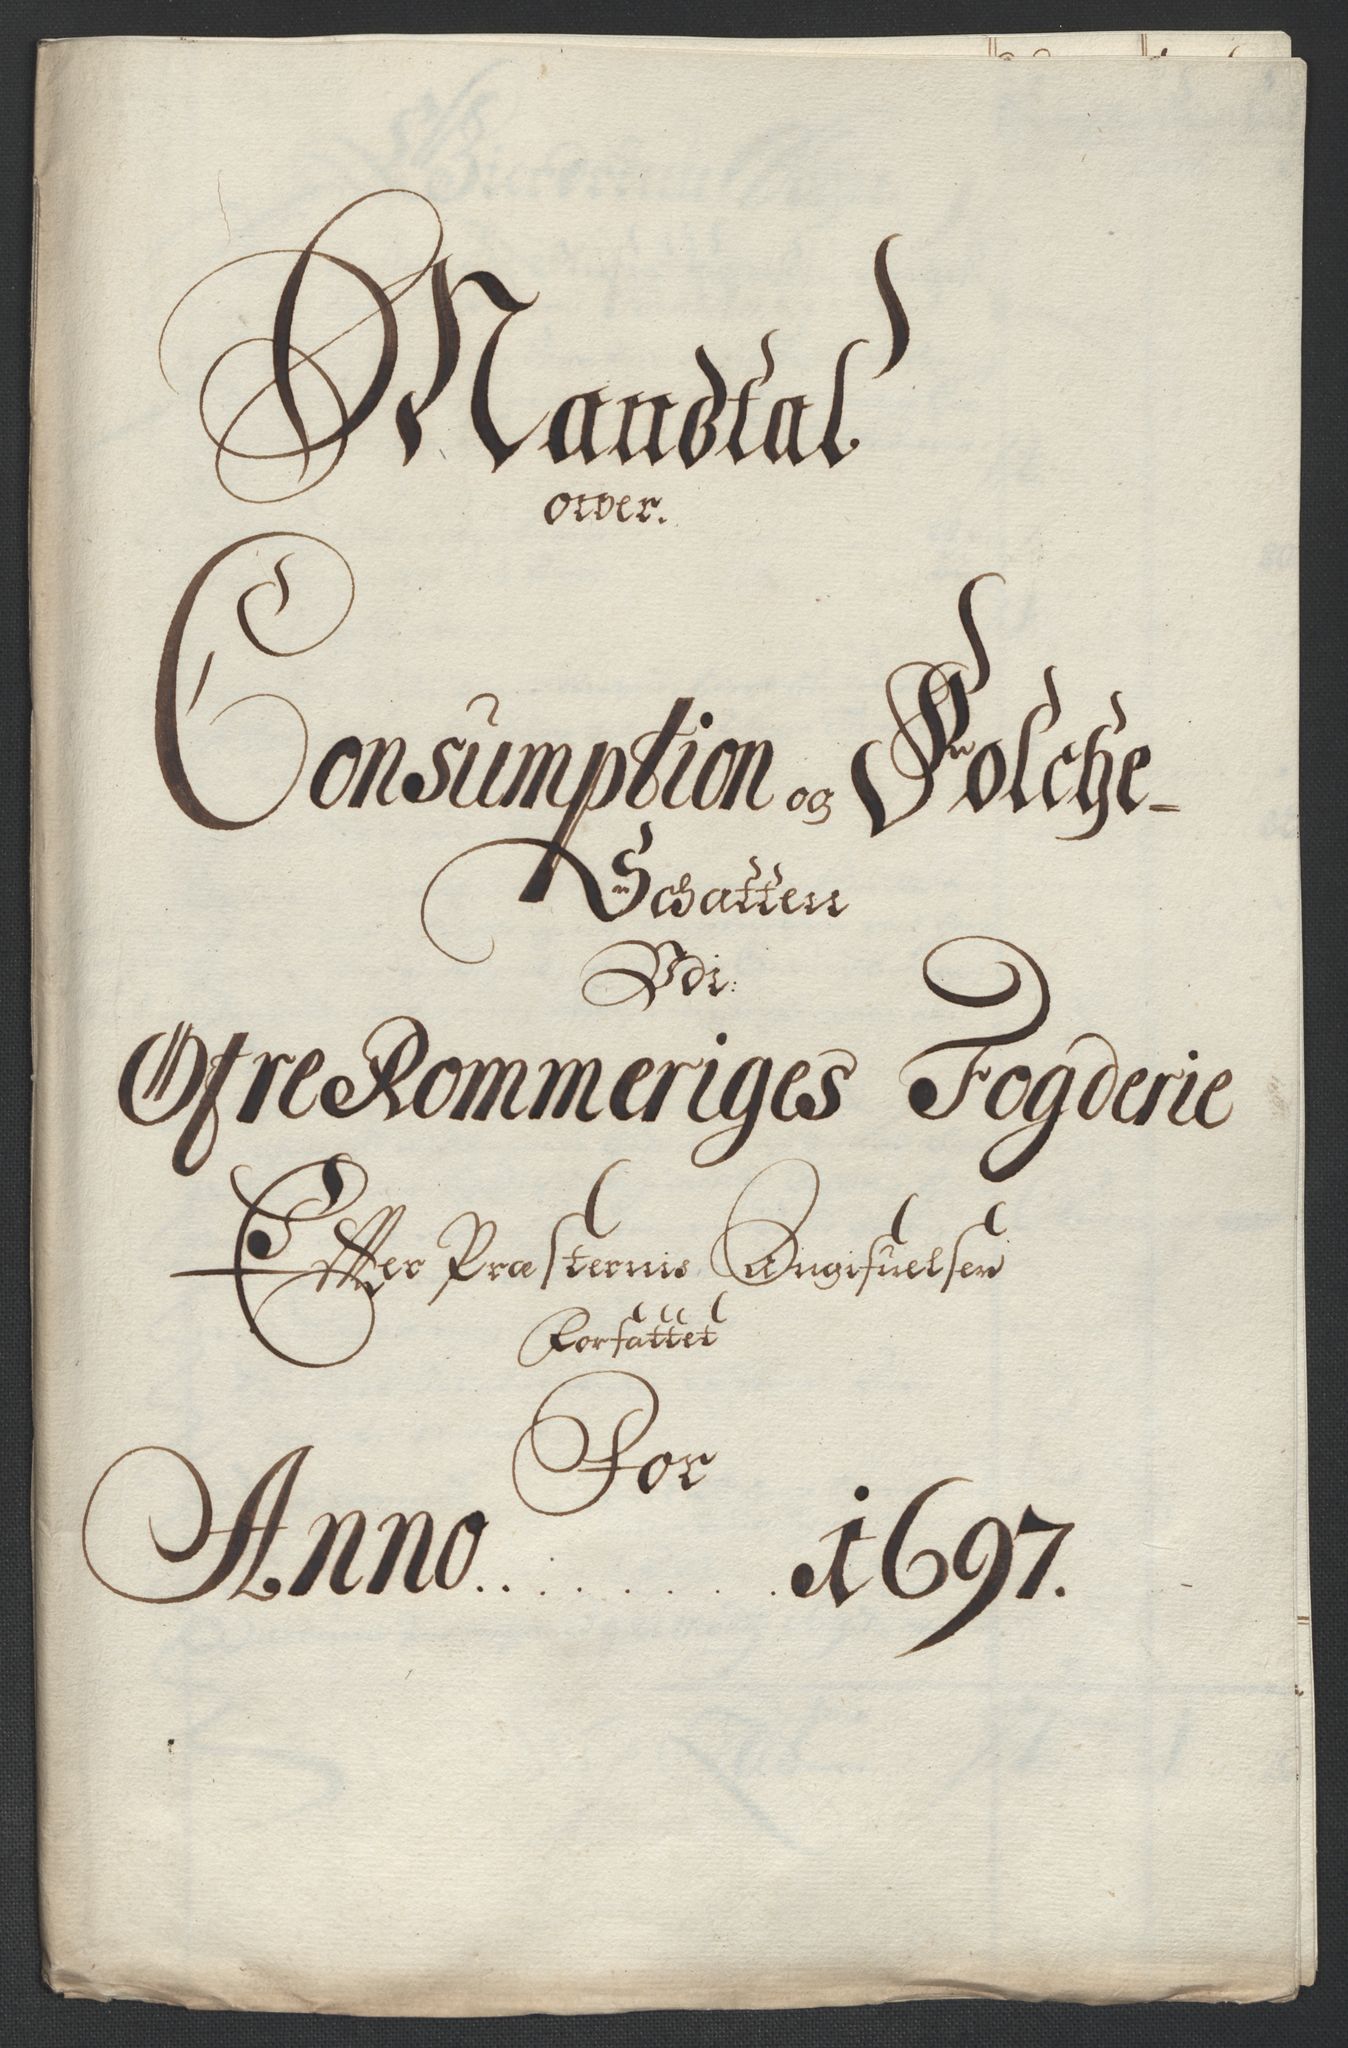 Mandtal
over.
Consumption og Folche-
Schatten
Udi
Øfre Rommeriges Fogderie
Effter Præsternis Angifuelser
Forfattet
For
Anno......... 1697.